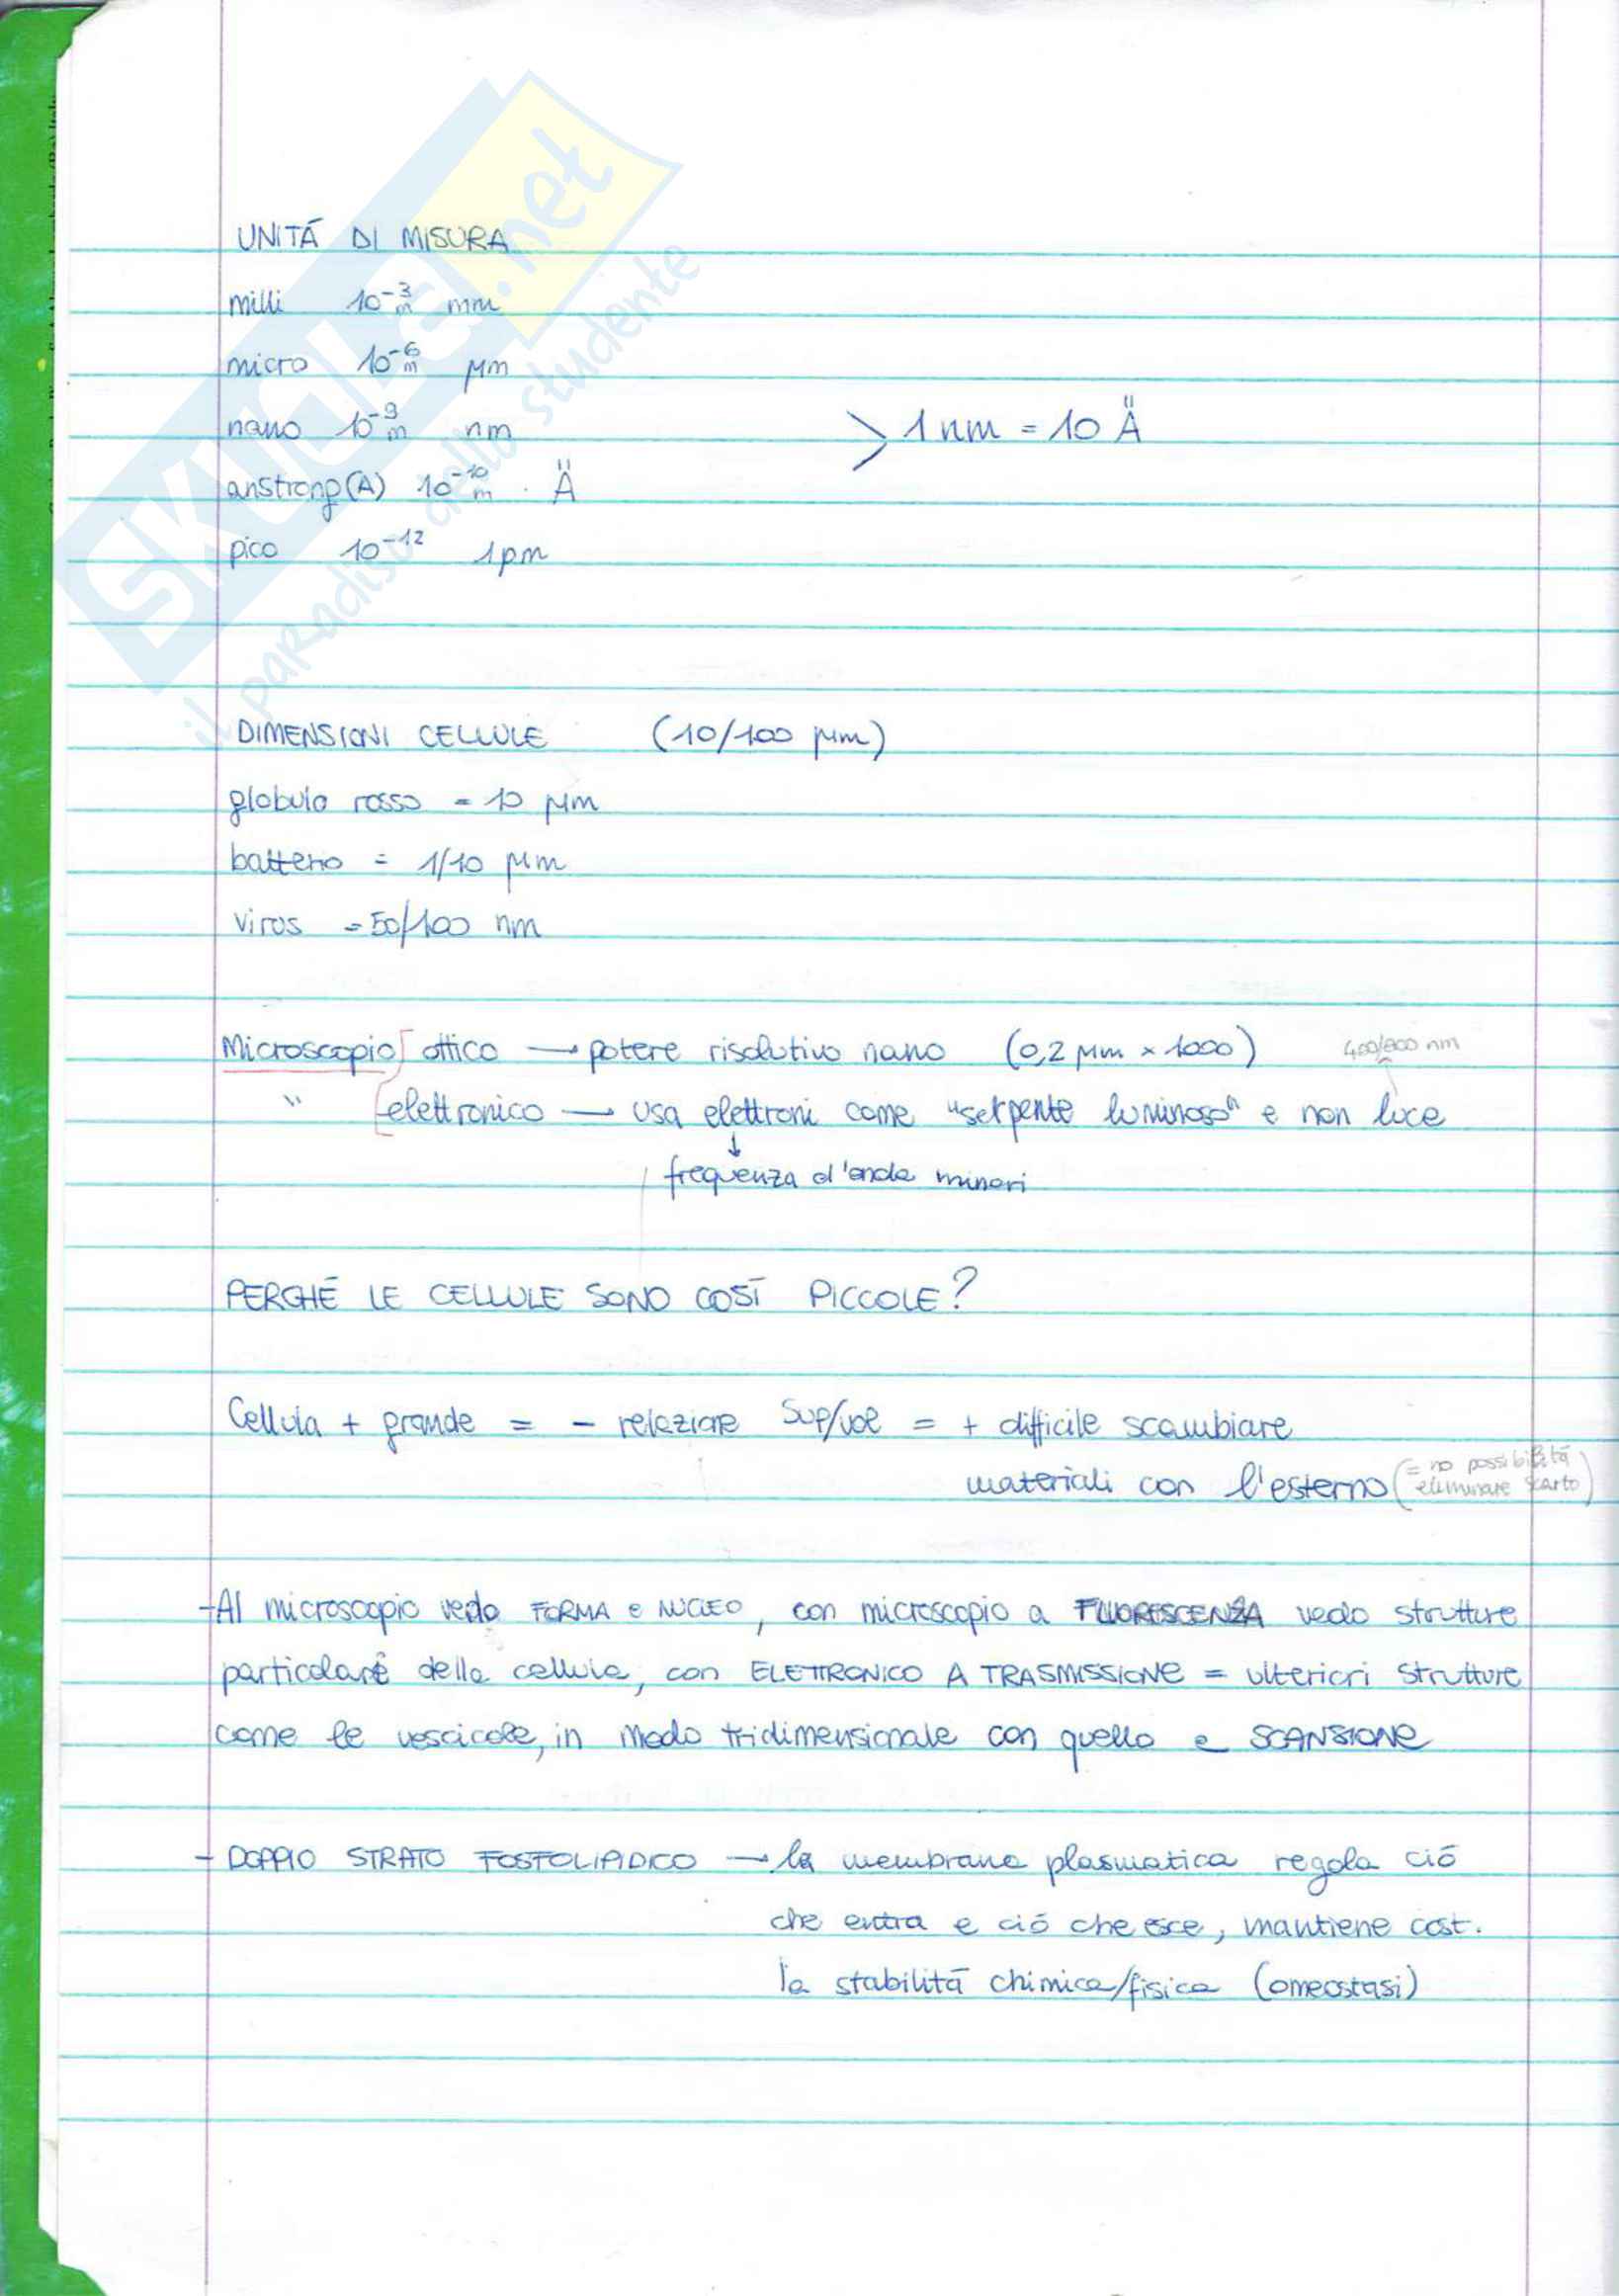 SKUOLA.net
il paradiso dello studente
UNITÁ DI MISURA
milli 10⁻³ m mm
micro 10⁻⁶ m µm
nano 10⁻⁹ m nm
> 1 nm = 10 Ä
anstrong(A) 10⁻¹⁰ m . Ä
pico 10⁻¹² 1pm
DIMENSIONI CELLULE (10/100 µm)
globulo rosso = 10 µm
batterio = 1/10 µm
virus = 50/100 nm
Microscopio ottico → potere risolutivo nano (0,2 µm x 1000) 400/800 nm
" elettronico → usa elettroni come "serpente luminoso" e non luce
↓
frequenza d'onda minori
PERCHÉ LE CELLULE SONO COSÍ PICCOLE?
Cellula + grande = - relazione Sup/vol = + difficile scambiare
materiali con l'esterno (= no possibilitá
eliminare scarto)
- Al microscopio vedo FORMA e NUCLEO, con microscopio a FLUORESCENZA vedo strutture
particolare della cellula, con ELETTRONICO A TRASMISSIONE = ulteriori strutture
come le vescicole, in modo tridimensionale con quello a SCANSIONE
- DOPPIO STRATO FOSFOLIPIDICO → la membrana plasmatica regola ció
che entra e ció che esce, mantiene cost.
la stabilitá chimica/fisica (omeostasi)